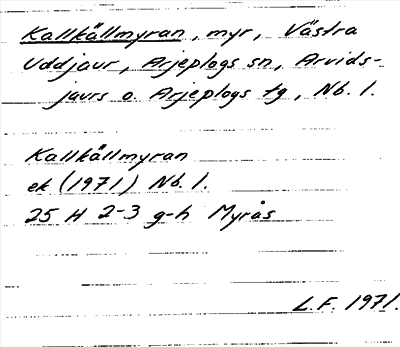 Kallkällmyran, myr, Västra
Uddjaur, Arjeplogs sn, Arvids-
jaurs o. Arjeplogs tg, Nb. l.
Kallkällmyran
ek (1971) Nb. l.
25 H 2-3 g-h Myrås
L.F. 1971.